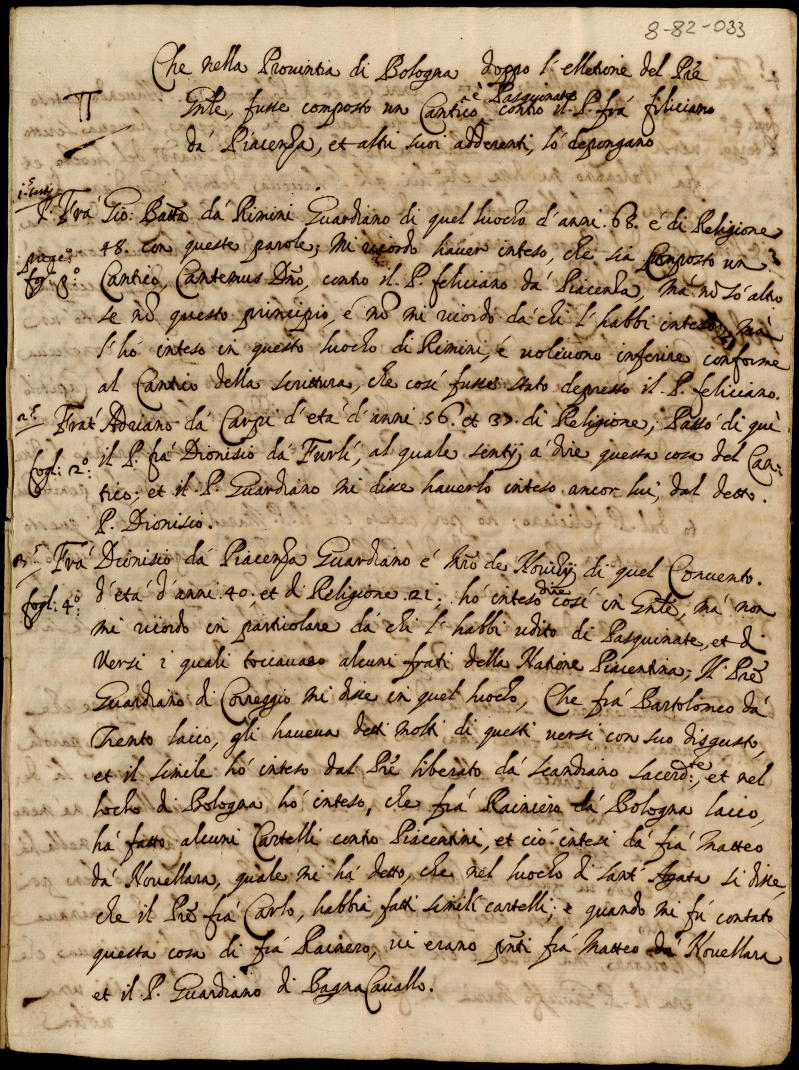 8-82-033
Che nella Prouintia di Bologna doppo l'elletione del Pre
Gnle, fusse composto un Cantico è Pasquinate contro il P. frà feliciano
dà Piacenza, et altri suoi adderenti, lo depongano
P. Frà Gio: Batta dà Rimini Guardiano di quel luocho d'anni .68. é di Religione
48. con queste parole; Mi ricordo hauer inteso, che sia Composto un
fogl: p.o:
Cantico, Cantemus Dno, contro il P. feliciano dà Piacenza, mà nō só altro
se nō questo principio, é nō mi ricordo dà chi l'habbi inteso, mà
l'hó inteso in questo luocho di Rimini, é voleuono inferire conforme
al Cantico della scrittura, che cosi fusse stato depresso il P. feliciano.
2.s Frat'Adriano dà Carpi d'età d'anni .56. et 37. di Religione; Passó di quì
fogl: 2.o:
il P. frà Dionisio dà Furlí, al quale sentij à dire questa cosa del Can:
tico; et il P. Guardiano mi disse hauerlo inteso ancor lui, dal detto.
P. Dionisio.
3.s Frà Dionisio dà Piacenza Guardiano é Mrō de Nouitij di quel Conuento.
fogl: 4.o:
d'età d'anni .40. et di Religione .21. hó inteso dire cosí in Gnle, mà non
mi ricordo in particolare dà chi l'habbi udito di Pasquinate, et di
Versi i quali toccauano alcuni frati della Natione Piacentina; Il Pre
Guardiano di Correggio mi disse in quel luocho, Che frà Bartolomeo dà
Trento laico, gli haueua detti molti di questi versi con suo disgusto,
et il simile hó inteso dal Pre liberato dà scandiano sacerd.te:, et nel
locho di Bologna hó inteso, che frà Rainiero dà Bologna laico,
hà fatto alcuni Cartelli contro Piacentini, et ció intesi dà frà Matteo
dà Nouellara, quale mi hà detto, che nel luocho di sant'Agata si disse,
che il Pre frà Carlo, habbia fatti simili cartelli; e quando mi fú contato
questa cosa di frà Rainero, ui erano pnti frà Matteo dà Nouellara
et il P. Guardiano di BagnaCauallo.